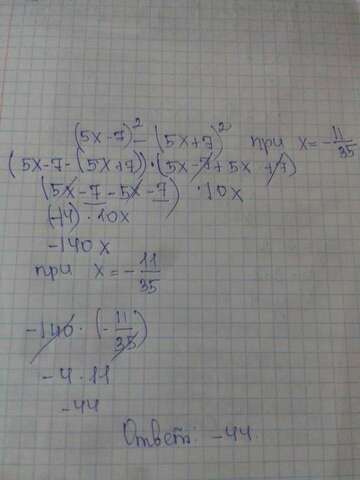 (5x-7)² - (5x+7)² при x = -11/35
(5x-7-(5x+7))·(5x-7+5x+7)
(5x-7-5x-7)·10x
(-14)·10x
-140x
при x = -11/35
-140·(-11/35)
-4·11
-44
Ответ: -44.